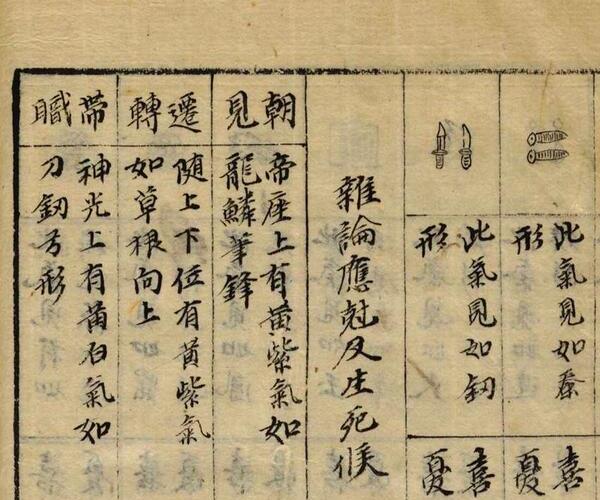 此氣見如秦
形
喜
憂
此氣見如釰
形
喜
憂
雜論應尅及生死候
朝
見
帝座上有黃紫氣如
龍鱗筆鋒
遷
轉
隨上下位有黃紫氣
如草根向上
帶
職
神光上有黃白氣如
刀釰等形